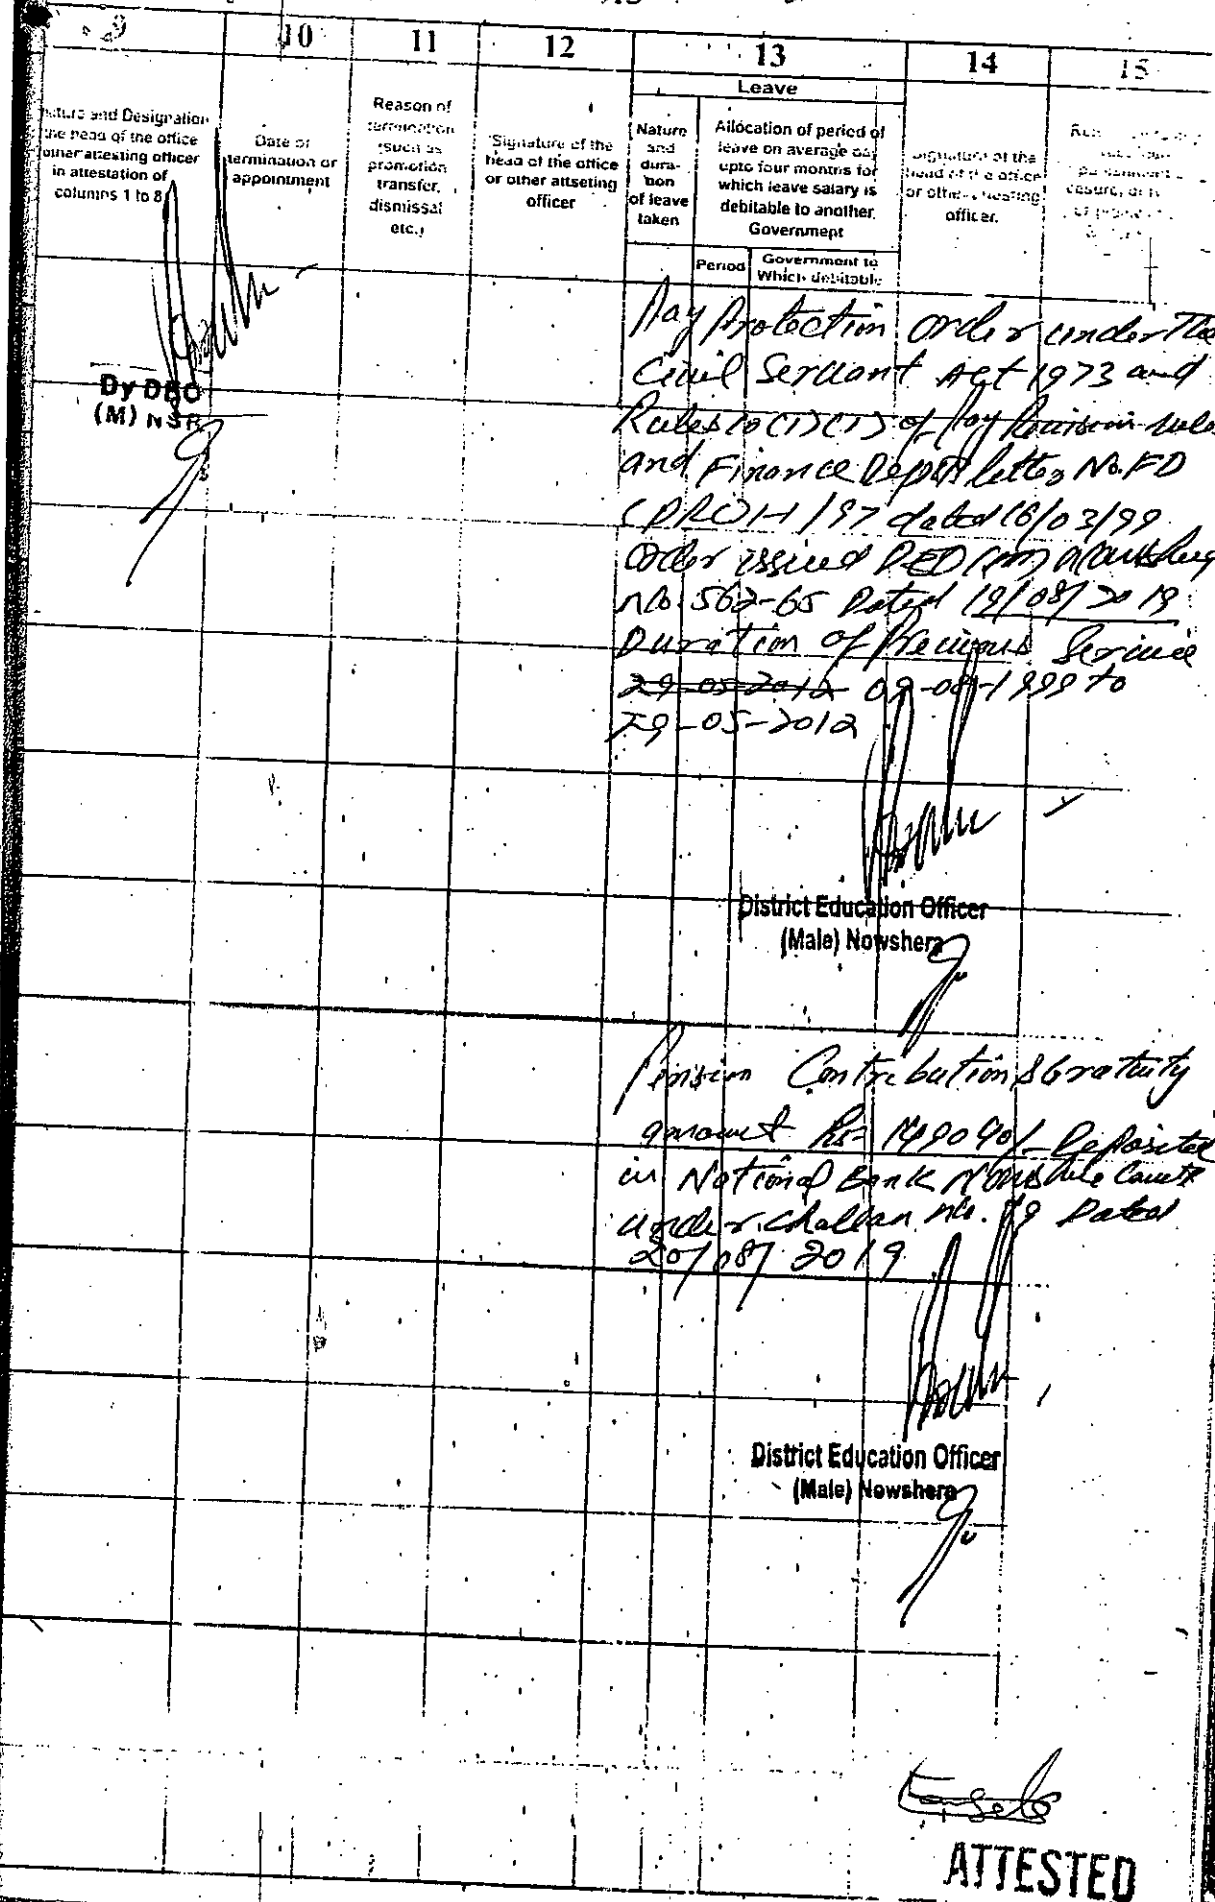 9 10 11 12 13 14 15
Leave
Signature and Designation
the head of the office
other attesting officer
in attestation of
columns 1 to 8
Date of
termination or
appointment
Reason of
termination
(such as
promotion
transfer,
dismissal
etc.)
Signature of the
head of the office
or other attseting
officer
Nature
and
dura-
tion
of leave
taken
Allocation of period of
leave on average pay
upto four months for
which leave salary is
debitable to another
Government
Period
Government to
Which debitable
Signature of the
head of the office
or other attesting
officer.
Dy DEO
(M) NSR
Pay Protection order under The
Civil Servant Act 1973 and
Rules 10 (1) (1) of Pay Revision rules
and Finance Deptt letter No. FD
(PRC) 1-1/97 dated 16/03/99
order issued DEO (m) Nowshera
no. 562-65 Dated 19/08/2019
Duration of Previous Service
29-05-2012 09-08-1999 to
29-05-2012
District Education Officer
(Male) Nowshera
Pension Contribution & Gratuity
amount Rs= 149040/- Deposited
in National Bank Nowshera Cantt
under challan no. 79 Dated
20/08/2019
District Education Officer
(Male) Nowshera
ATTESTED